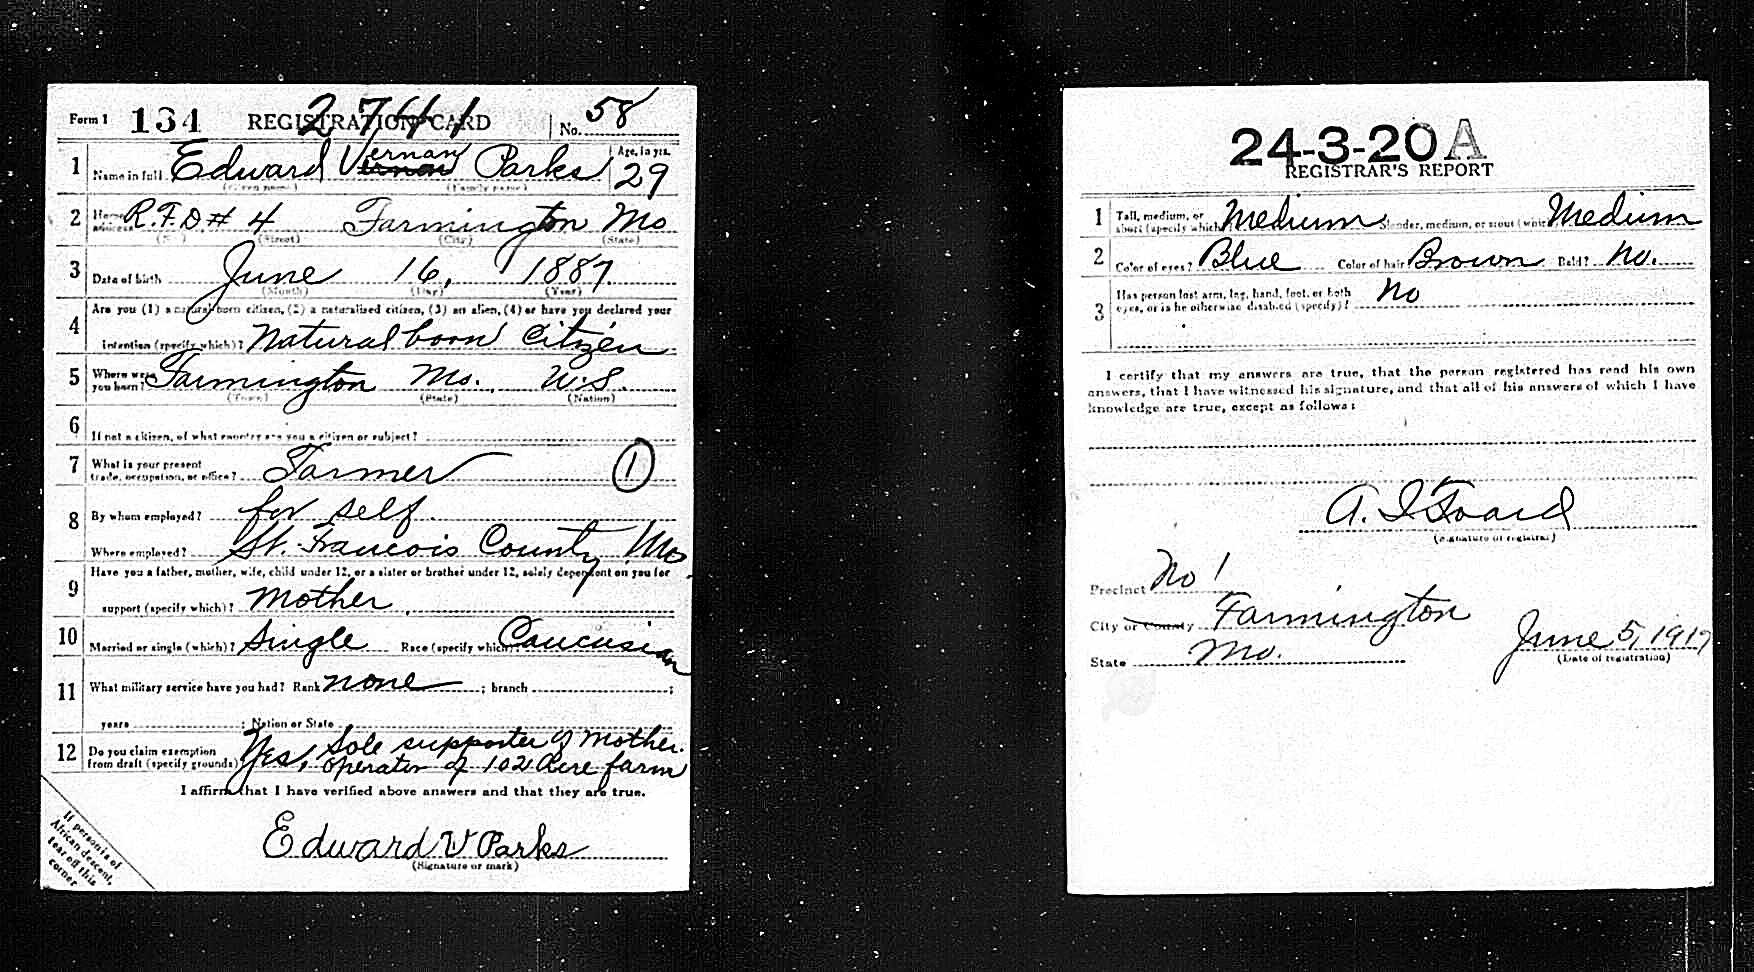 Form 1 134 REGISTRATION CARD 2741 No. 58
1 Name in full Edward Vernon Vernan Parks Age, in yrs. 29
(Given name) (Family name)
2 Home address R.F.D # 4 Farmington Mo
(No.) (Street) (City) (State)
3 Date of birth June 16, 1887
(Month) (Day) (Year)
4 Are you (1) a natural born citizen, (2) a naturalized citizen, (3) an alien, (4) or have you declared your
intention (specify which)? Natural born Citizen
5 Where were you born? Farmington Mo. U.S.
(Town) (State) (Nation)
6 If not a citizen, of what country are you a citizen or subject?
7 What is your present
trade, occupation, or office? Farmer 1
8 By whom employed? for self.
Where employed? St. Francois County, Mo.
9 Have you a father, mother, wife, child under 12, or a sister or brother under 12, solely dependent on you for
support (specify which)? Mother
10 Married or single (which)? Single Race (specify which)? Caucasian
11 What military service have you had? Rank none ; branch ;
years ; Nation or State
12 Do you claim exemption
from draft (specify grounds)? Yes, Sole supporter of Mother.
operator of 102 Acre farm
I affirm that I have verified above answers and that they are true.
Edward V Parks
(Signature or mark)
If person is of
African descent,
tear off this
corner
24-3-20 A
REGISTRAR'S REPORT
1 Tall, medium, or
short (specify which)? Medium Slender, medium, or stout (which)? Medium
2 Color of eyes? Blue Color of hair? Brown Bald? No.
3 Has person lost arm, leg, hand, foot, or both
eyes, or is he otherwise disabled (specify)? No
I certify that my answers are true, that the person registered has read his own
answers, that I have witnessed his signature, and that all of his answers of which I have
knowledge are true, except as follows:
A. I Foard
(Signature of registrar)
Precinct No 1
City or County Farmington
State Mo. June 5, 1917
(Date of registration)